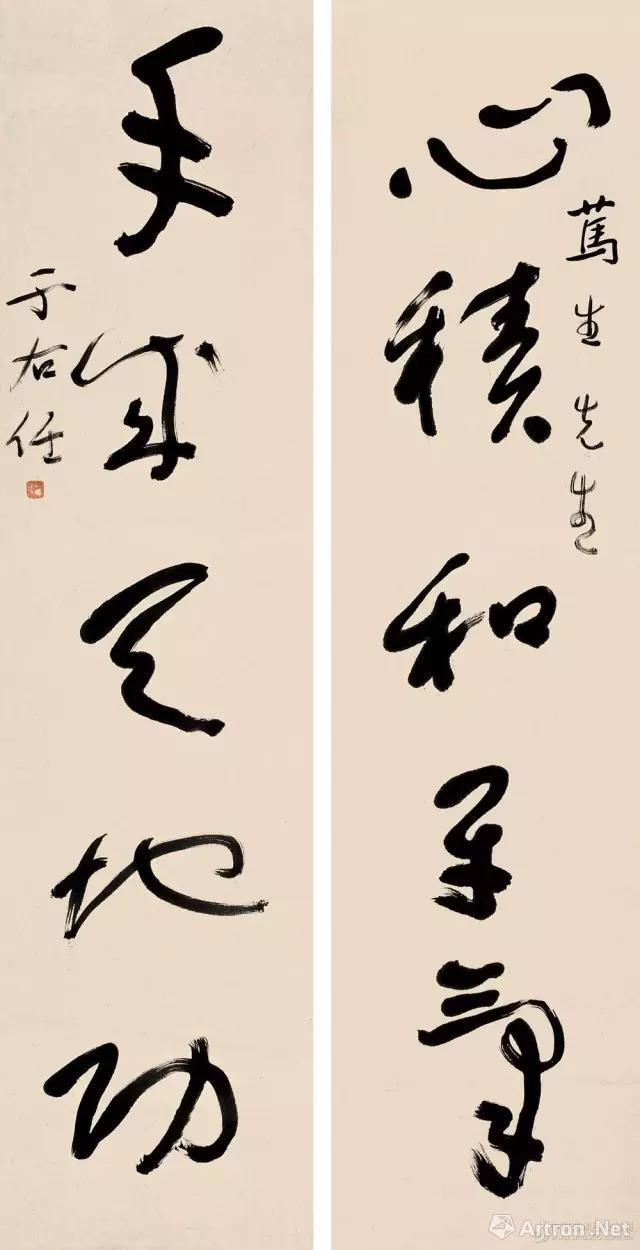 心積和平氣
篤生先生
手成天地功
于右任
Artron.Net